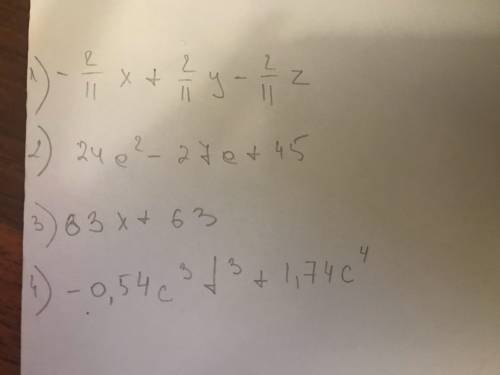 1) - 2/11 x + 2/11 y - 2/11 z
2) 24e² - 27e + 45
3) 63x + 63
4) -0,54c³f³ + 1,74c⁴